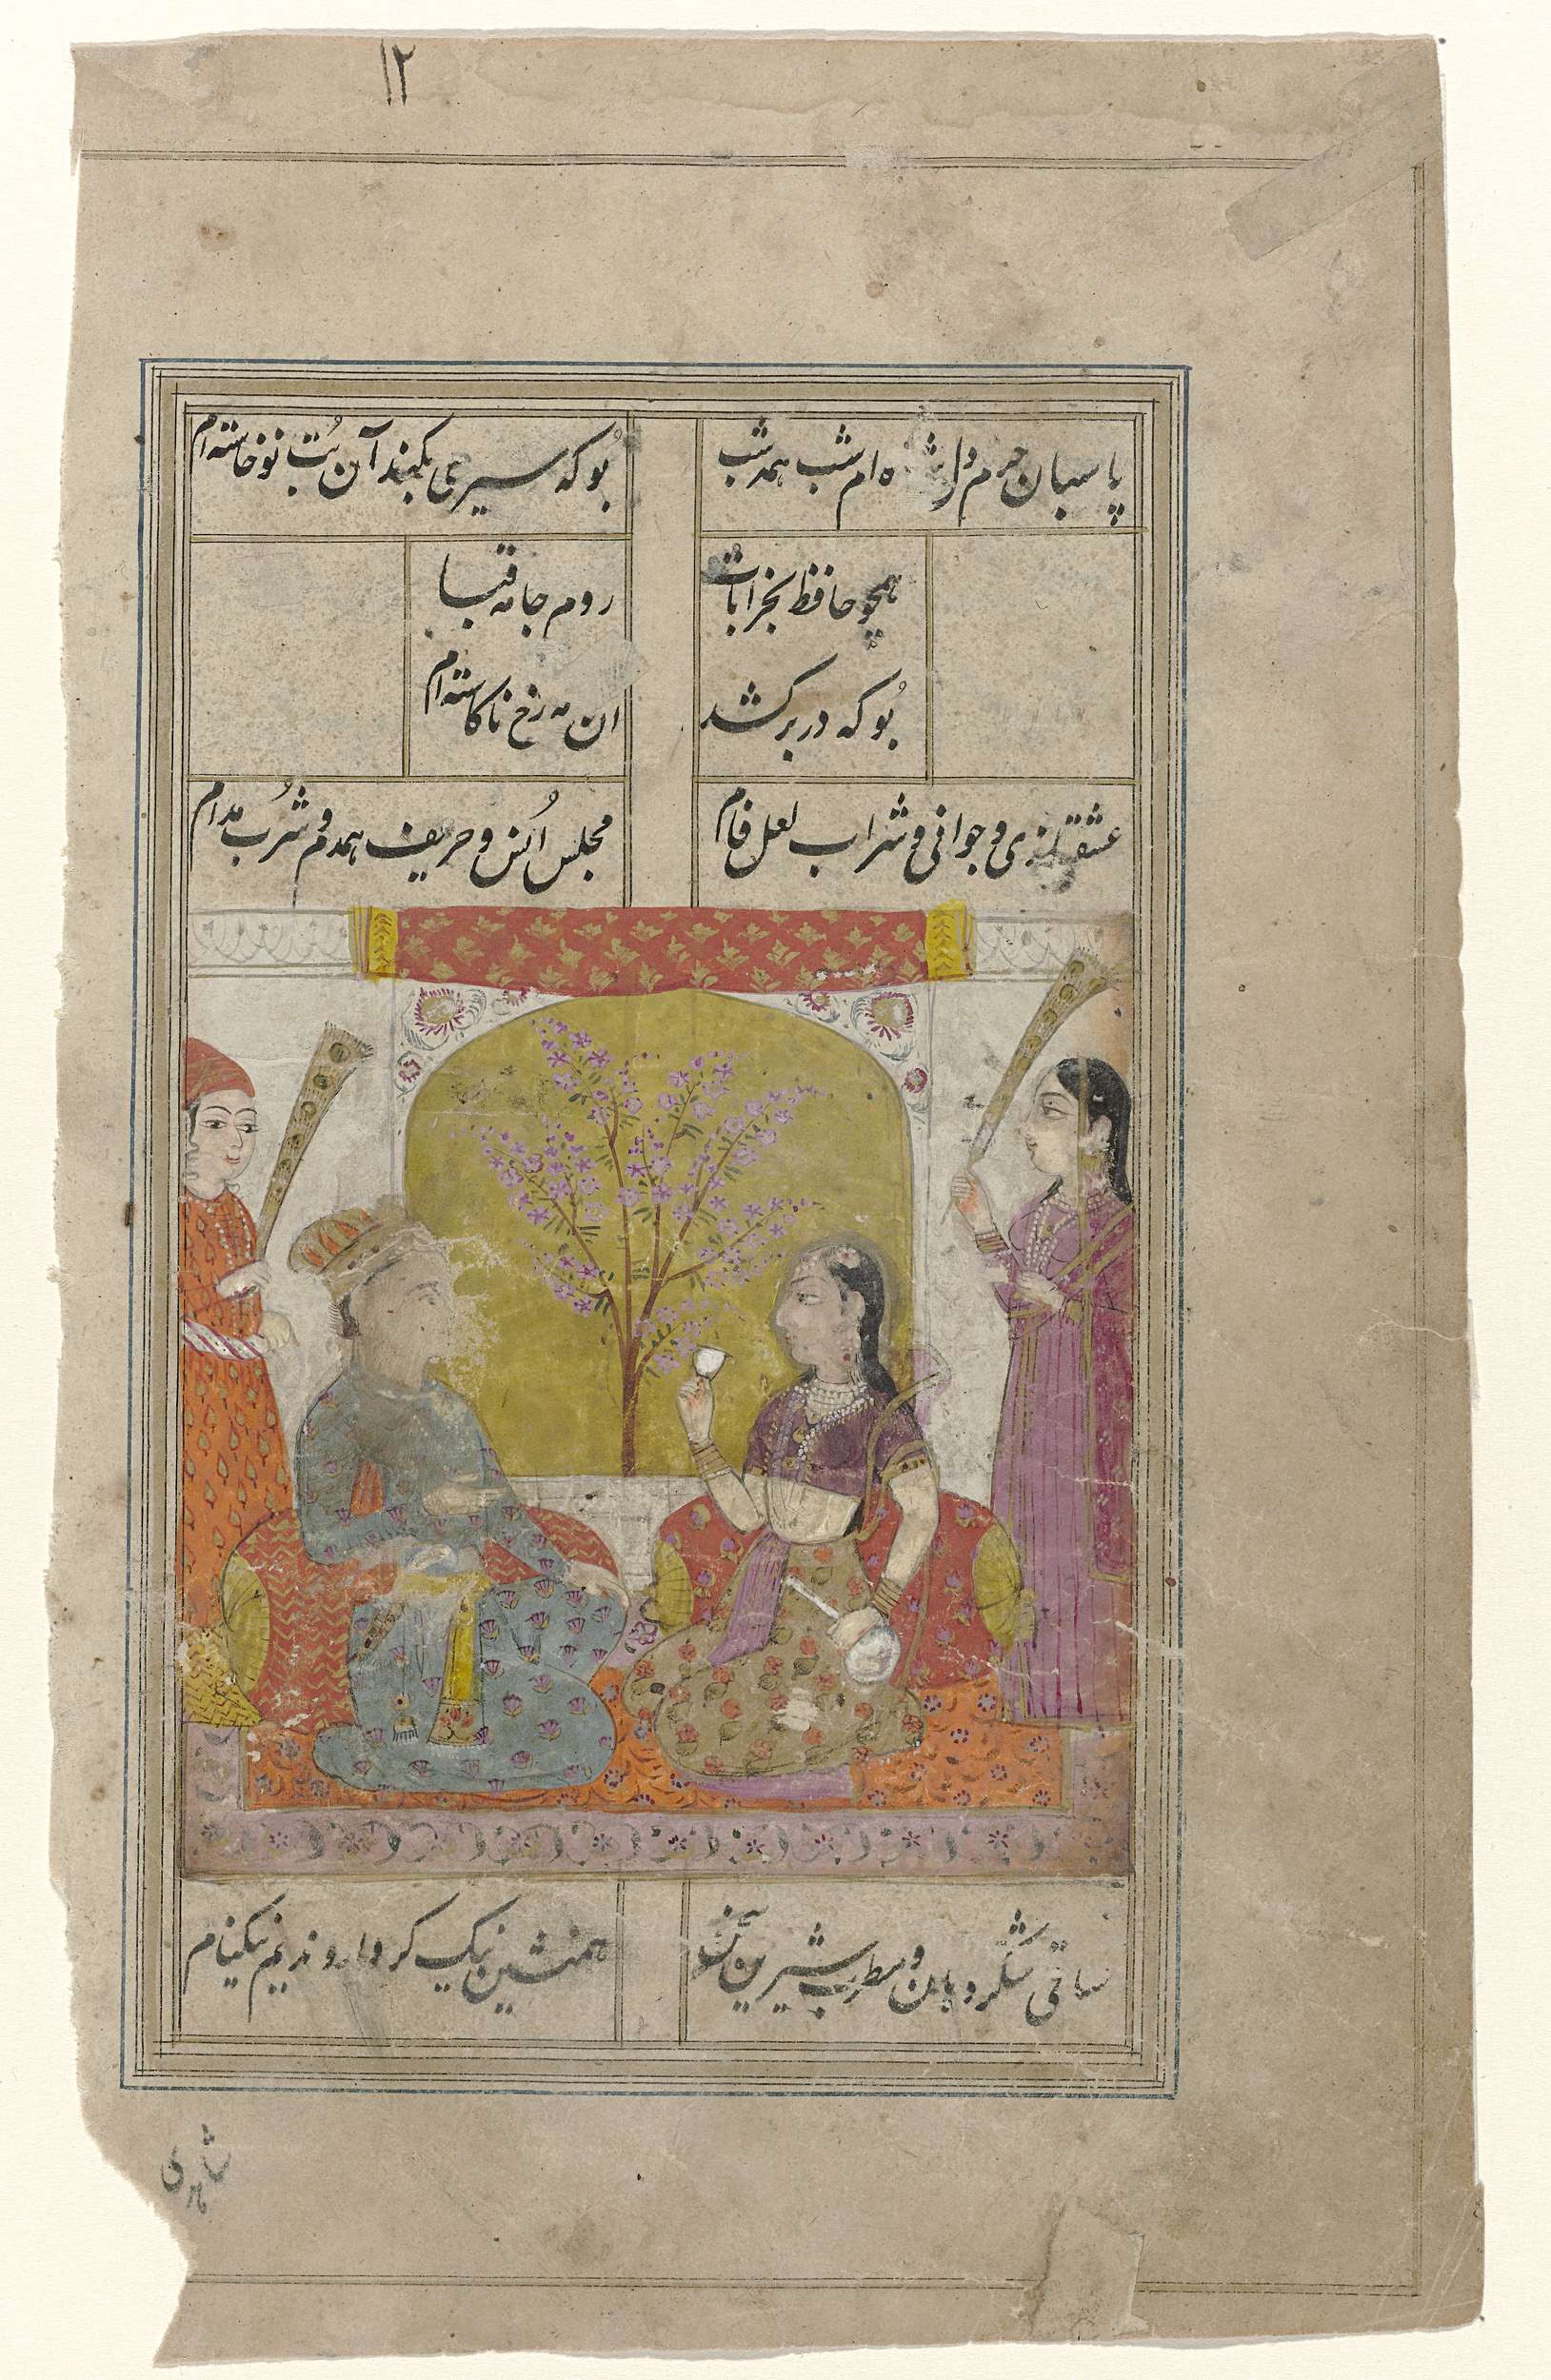 ۱۲
پاسبان حرم دل شده ام شب همه شب بُوکه سیری بکند آن بُت نوخاسته ام
همچو حافظ بخرابات روم جامه قبا
بُوکه در بر کشد ان مه رخ ناکاسته ام
عشقبازی و جوانی و شراب لعل فام مجلس اُنس و حریف همدم و شُرب مدام
ساقی شکر دهان و مطرب شیرین سخن همنشین نیک کردار و ندیم نیکنام
شاهدی